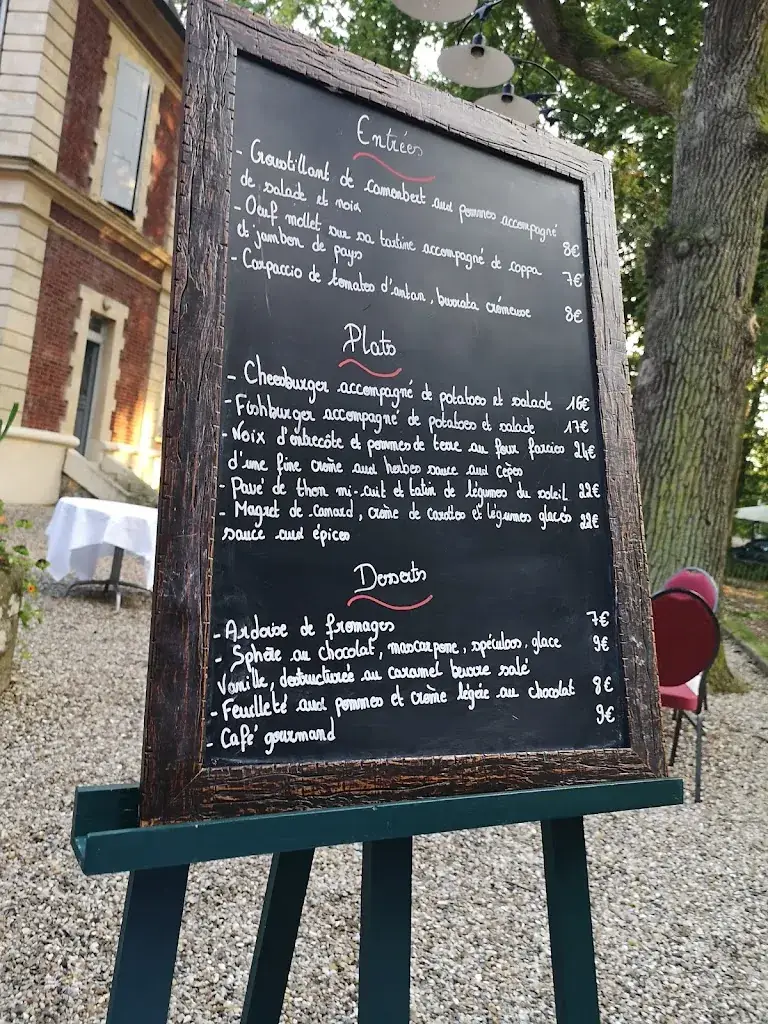 Entrées
- Croustillant de camembert aux pommes accompagné
de salade et noix 8€
- Oeuf mollet sur sa tartine accompagné de coppa
et jambon de pays 7€
- Carpaccio de tomates d'antan, burrata crémeuse 8€
Plats
- Cheesburger accompagné de potatoes et salade 16€
- Fishburger accompagné de potatoes et salade 17€
- Noix d'entrecôte et pommes de terre au four farcies 24€
d'une fine crème aux herbes sauce aux cèpes
- Pavé de thon mi-cuit et tatin de légumes du soleil 22€
- Magret de canard, crème de carottes et légumes glacés 22€
sauce aux épices
Desserts
- Ardoise de fromages 7€
- Sphère au chocolat, mascarpone, spéculoos, glace 9€
Vanille, destructurée au caramel beurre salé
- Feuilleté aux pommes et crème légère au chocolat 8€
- Café gourmand 9€